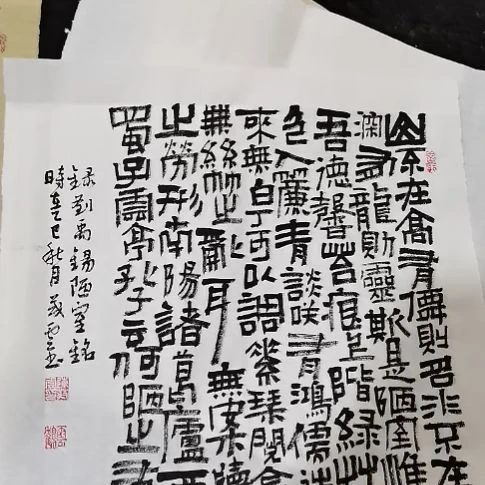 山不在高有僊則名水不在
深有龍則靈斯是陋室惟
吾德馨苔痕上階綠艸
色入簾青談咲有鴻儒
來無白丁可以調素琴閱金
無絲竹之亂耳無案牘
之勞形南陽諸葛廬西
蜀子雲亭孔子云何陋之
錄劉禹錫陋室銘
時在乙巳秋月